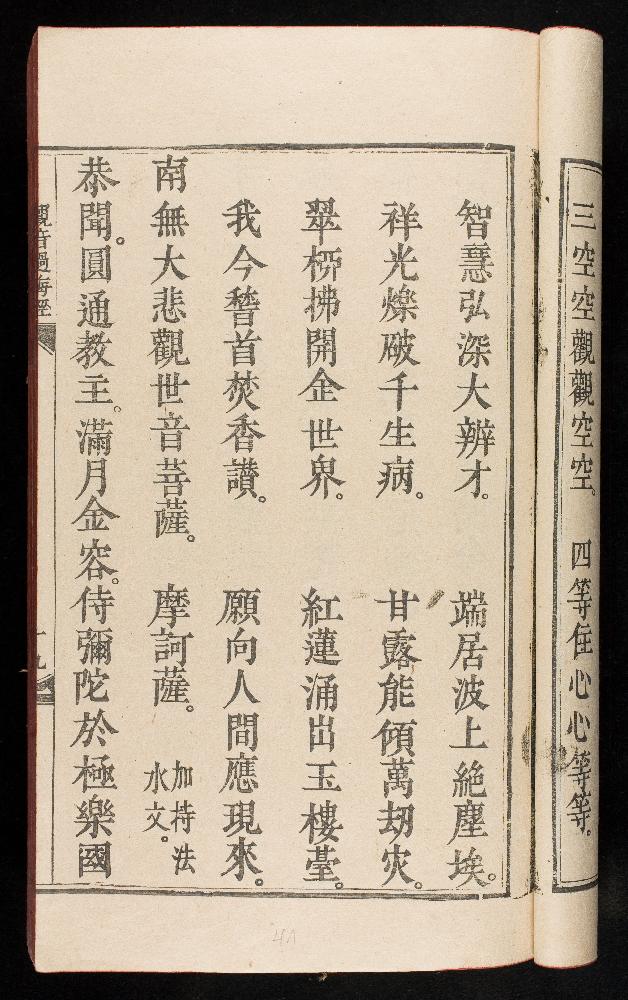 三空空觀觀空空。　四等住心心等等。
智慧弘深大辨才。　端居波上絶塵埃。
祥光爍破千生病。　甘露能傾萬刼灾。
翠柳拂開企世界。　紅蓮涌出玉樓臺。
我今稽首焚香讃。　願向人間應現來。
南無大悲觀世音菩薩。　摩訶薩。　加持法水文。
恭聞。圓通教主。滿月金容。侍彌陀於極樂國
觀音過海經
十九